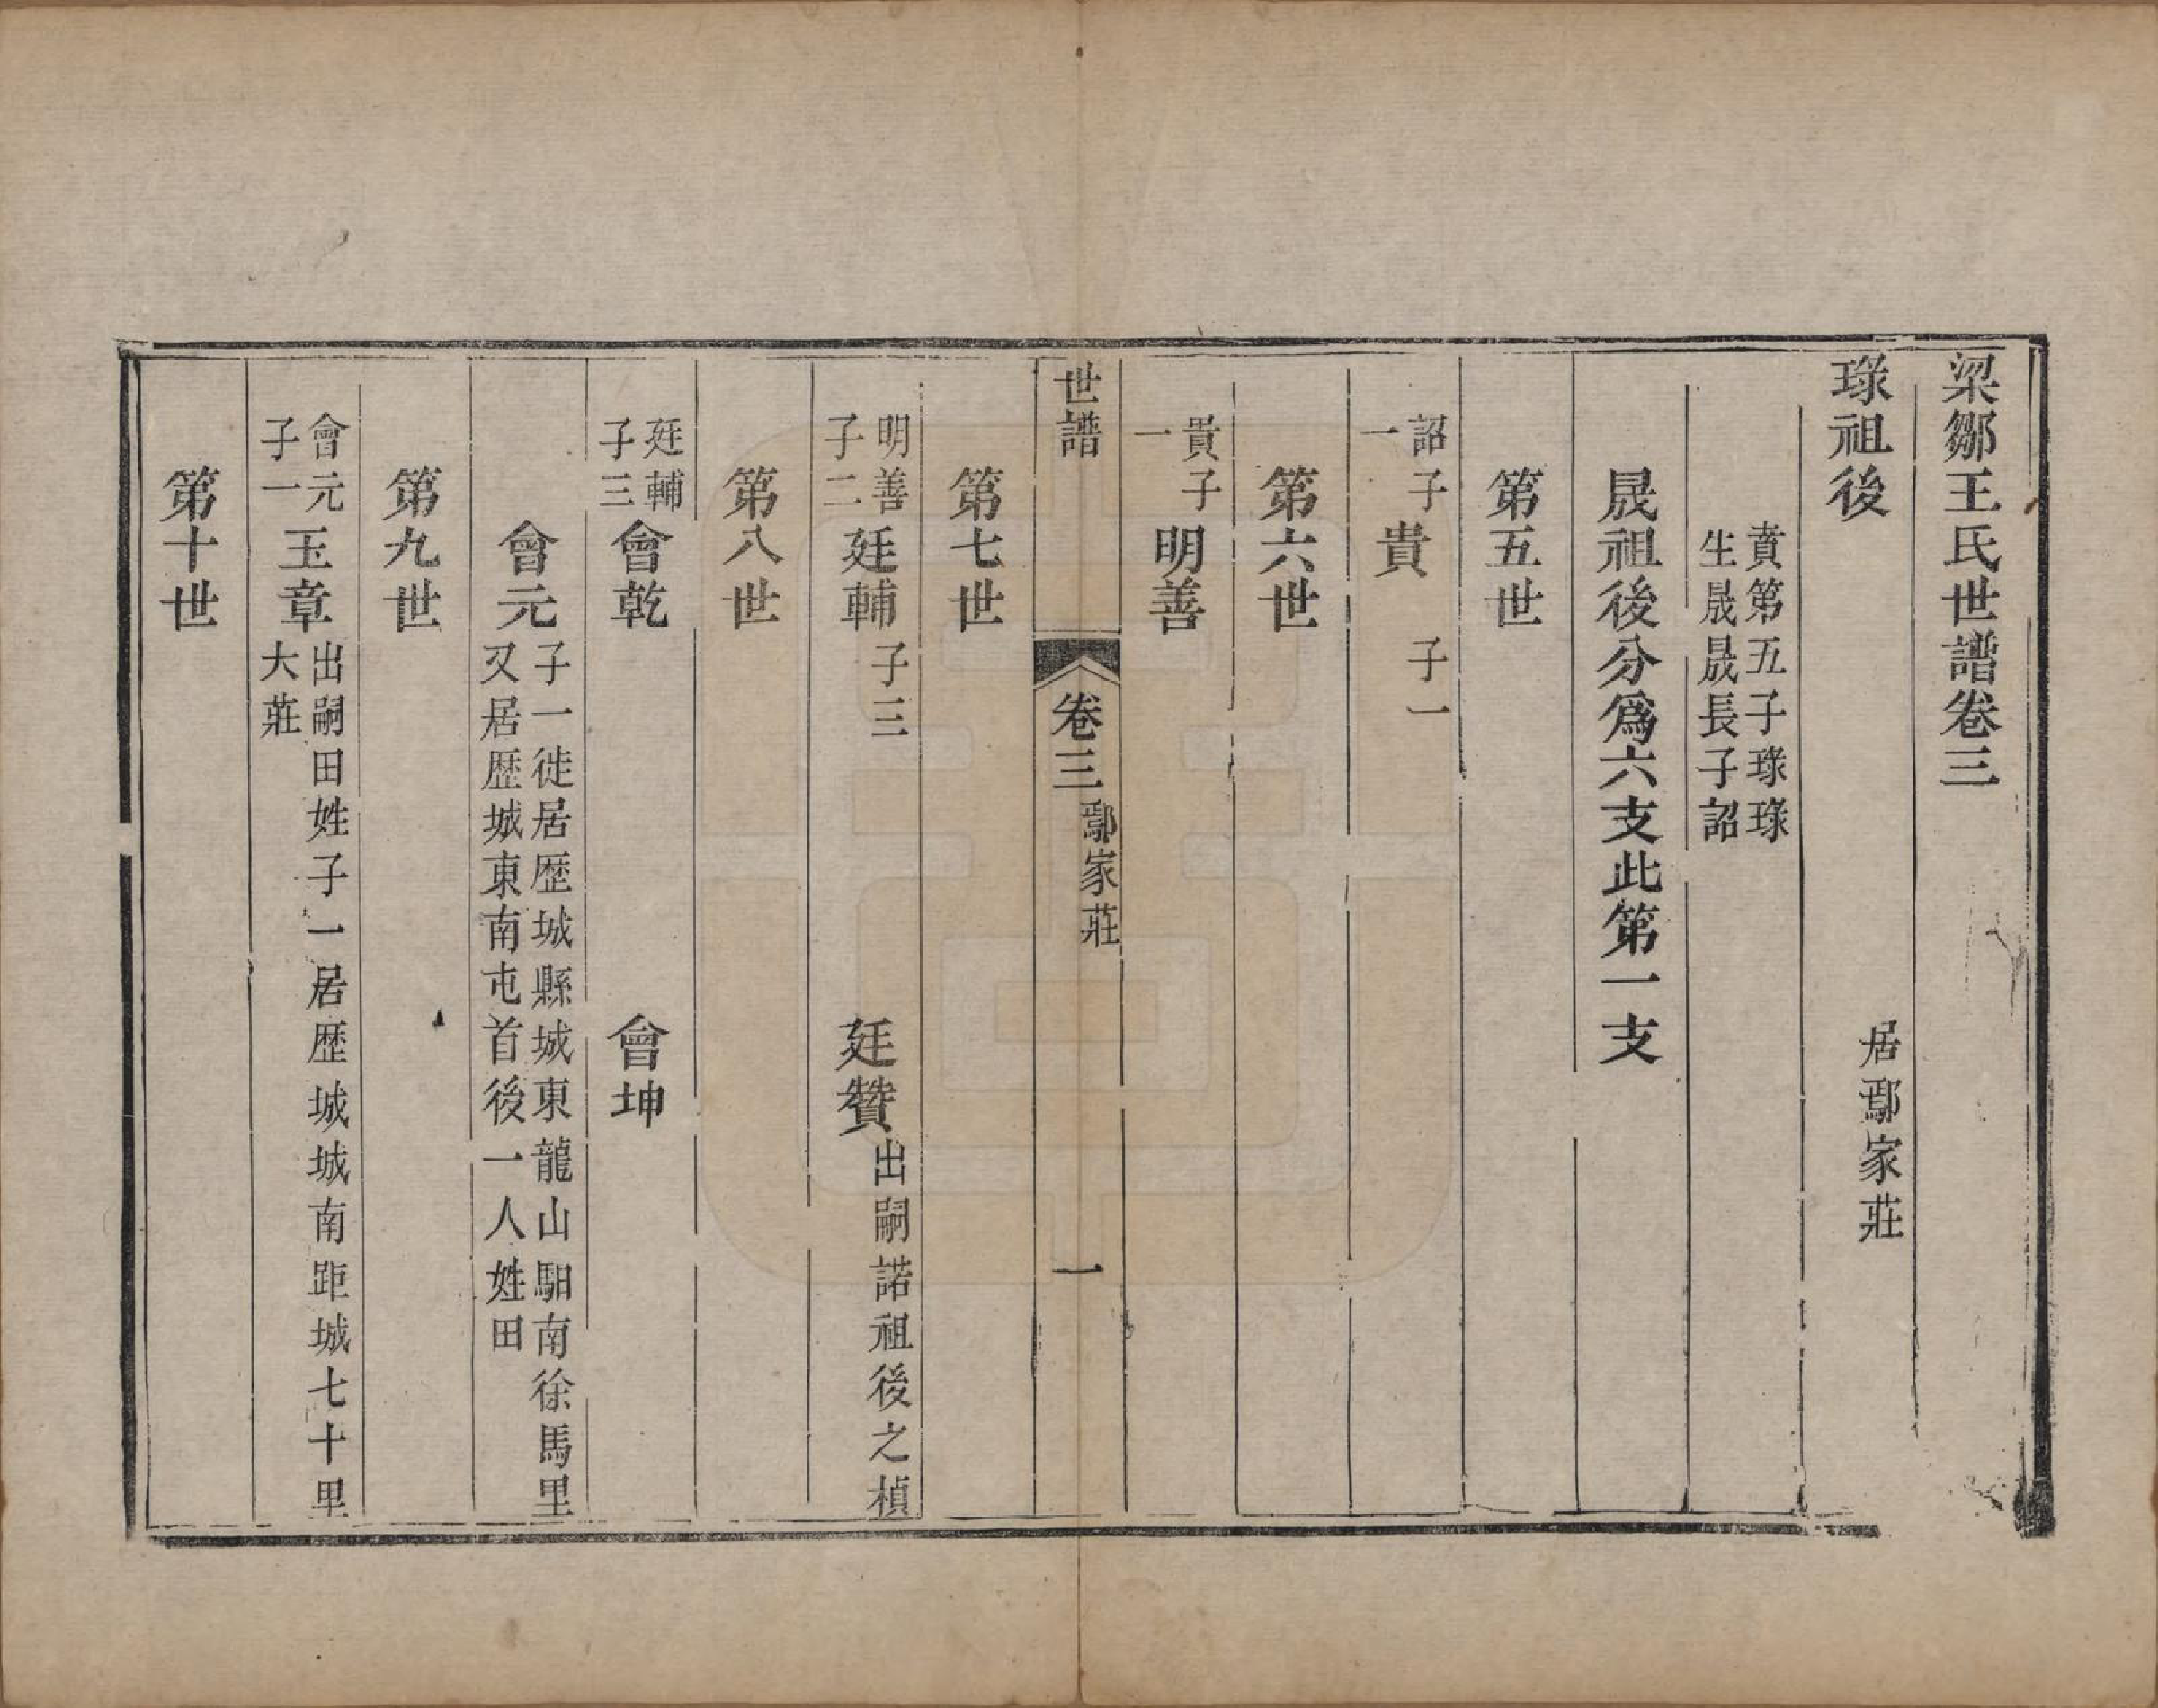 梁鄒王氏世譜卷三
琭祖後　居鄢家莊
賁第五子琭琭
生晟晟長子詔
晟祖後分爲六支此第一支
第五世
詔子一貴　子一
第六世
貴子一明善
世譜　卷三　鄢家莊　一
第七世
明善子二廷輔　子三　廷贊　出嗣諾祖後之楨
第八世
廷輔子三會乾　會坤
會元　子一徙居歴城縣城東龍山馹南徐馬里
又居歴城東南屯首後一人姓田
第九世
會元子一玉章　出嗣田姓子一居歴城城南距城七十里
大莊
第十世